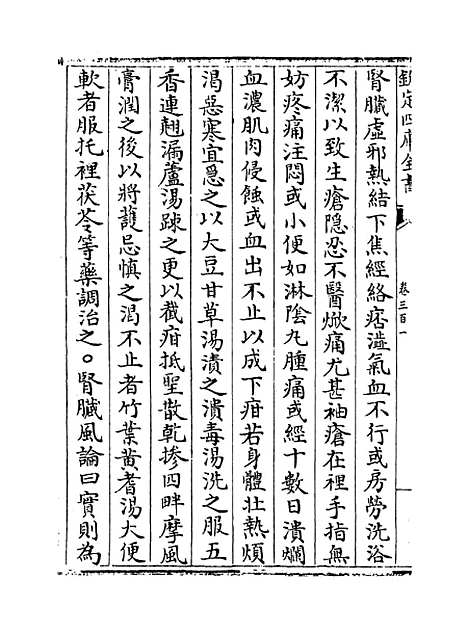 欽定四庫全書
卷三百一
腎臟虛邪熱結下焦經絡痞澁氣血不行或房勞洗浴
不潔以致生瘡隐忍不醫焮痛尤甚袖瘡在裡手指無
妨疼痛注悶或小便如淋陰丸腫痛或經十數日潰爛
血濃肌肉侵蝕或血出不止以成下疳若身體壯熱煩
渴惡寒宜急之以大豆甘草湯漬之潰毒湯洗之服五
香連翹漏蘆湯踈之更以截疳抵聖散乾摻四畔摩風
膏潤之後以將䕶忌慎之渴不止者竹葉黄耆湯大便
軟者服托裡茯苓等藥調治之。腎臟風論曰實則為